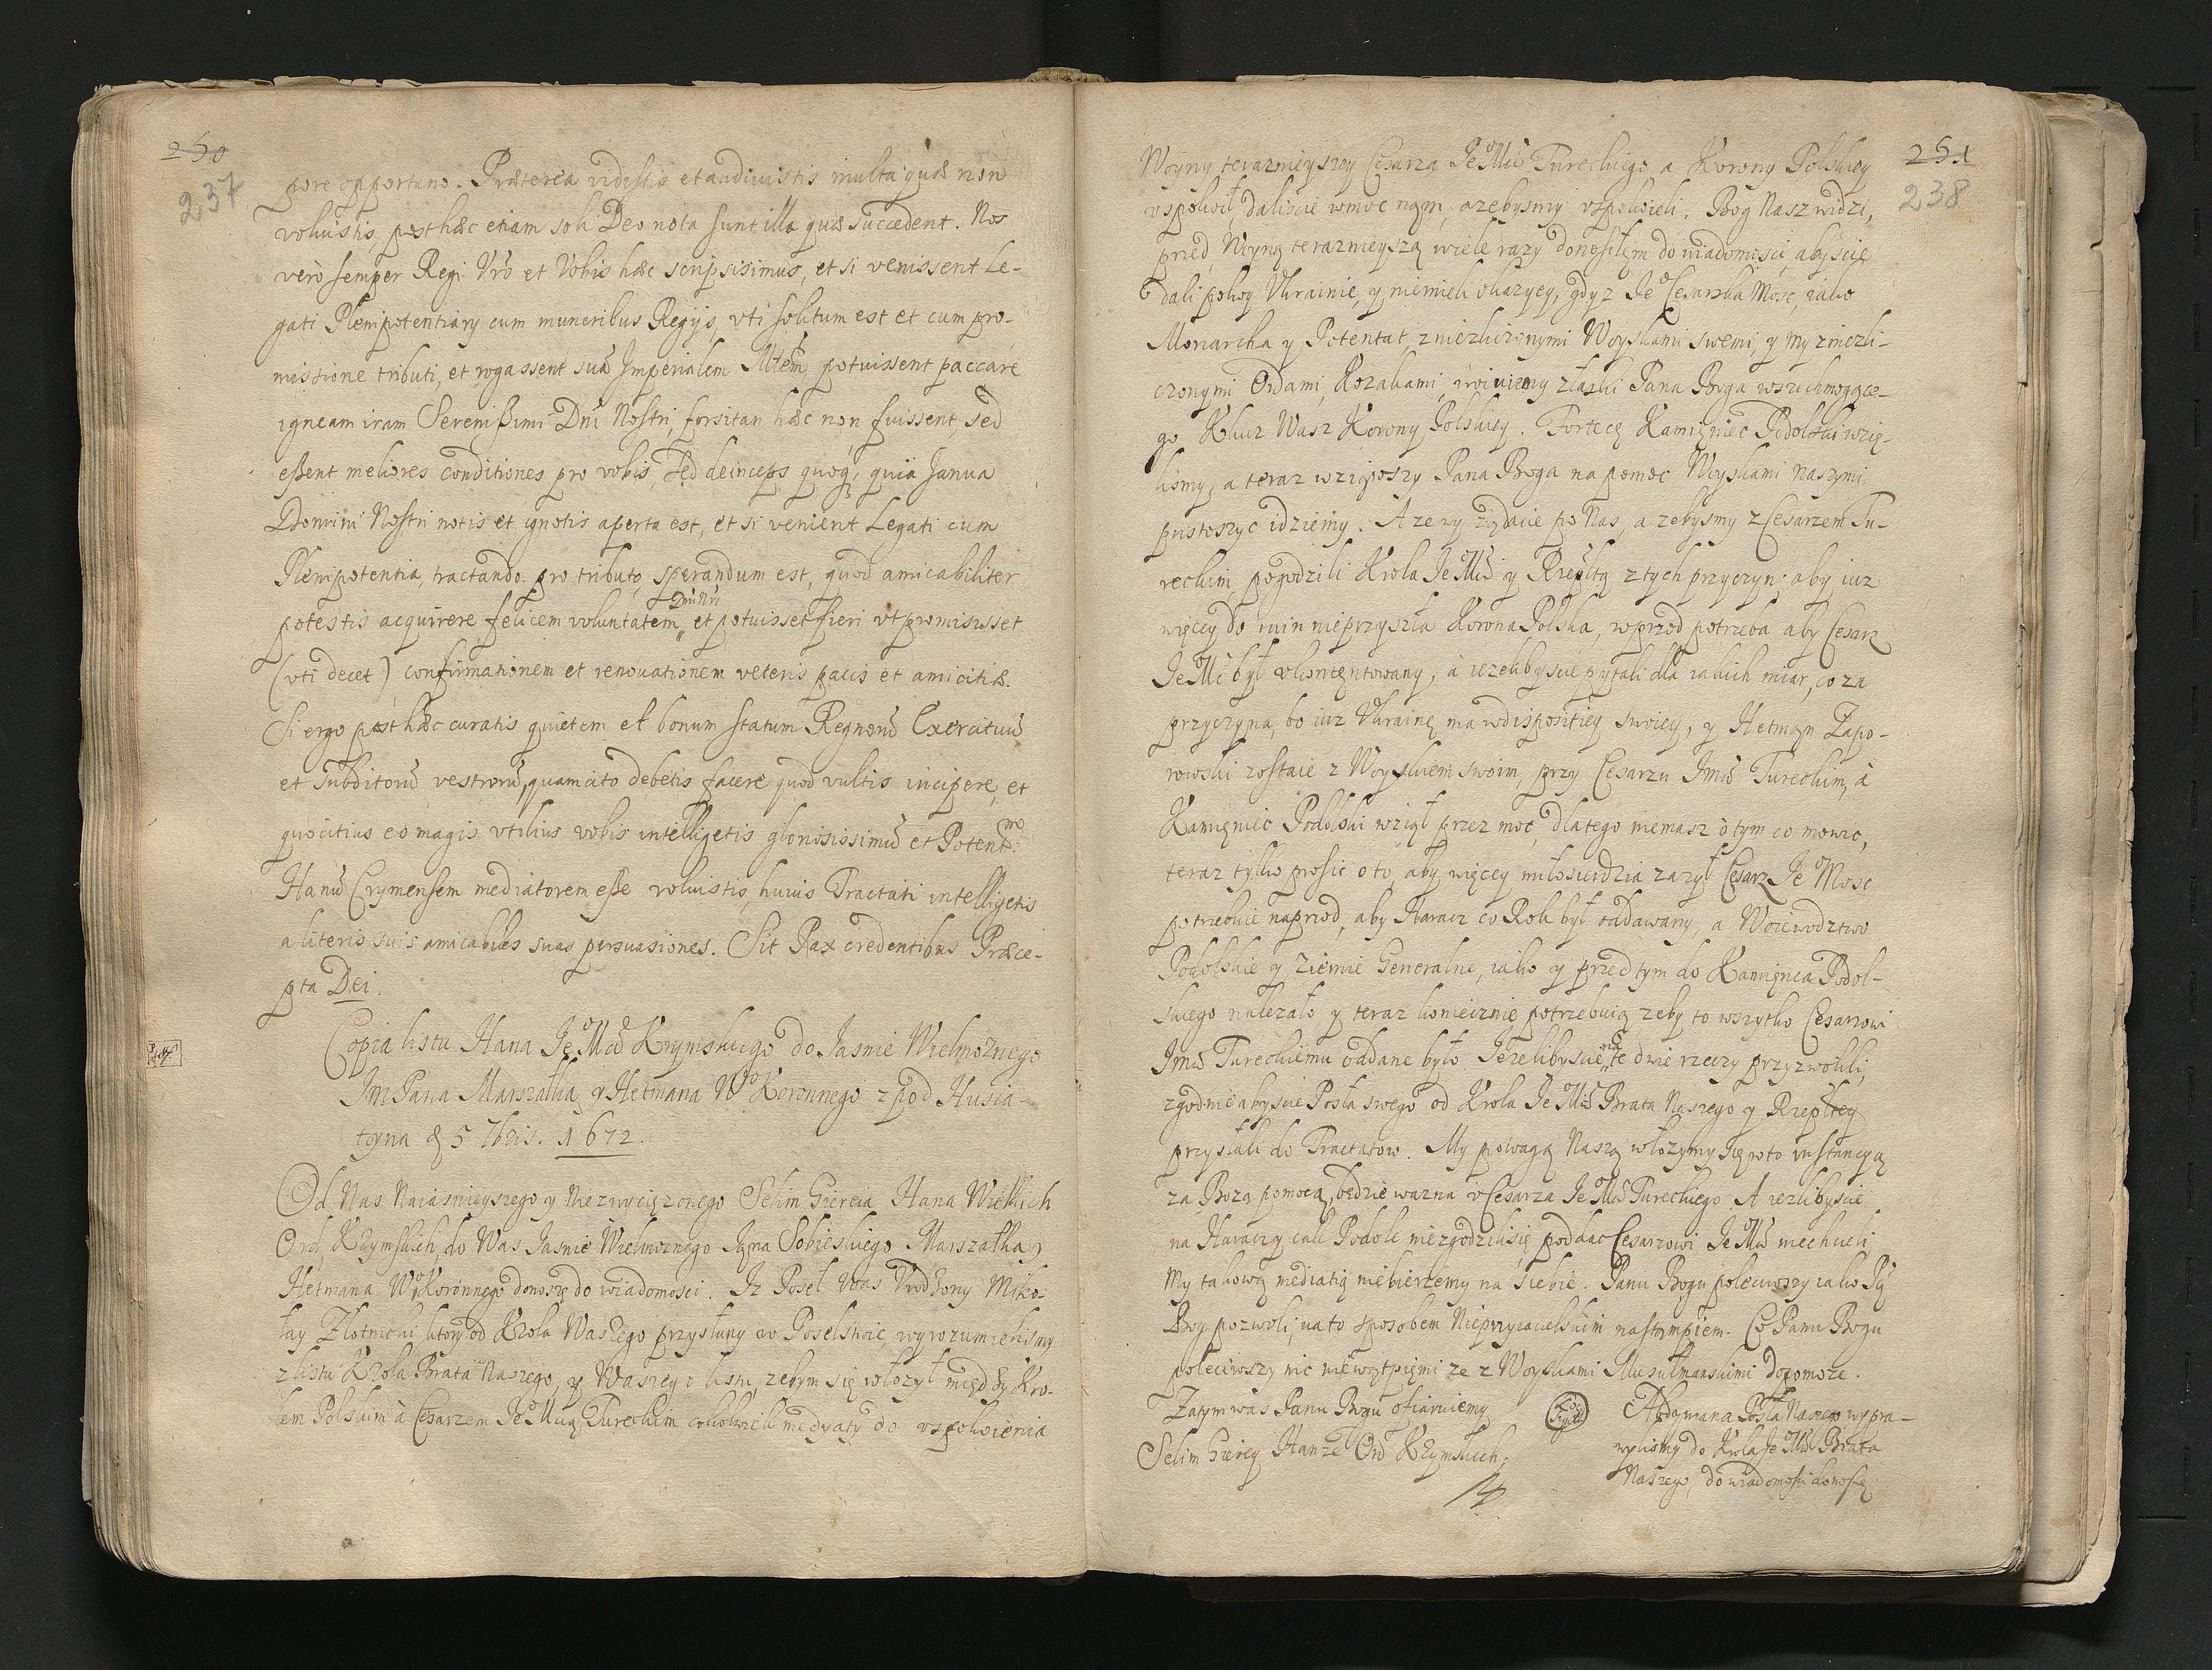 250
237
pore opportuno. Præterea vidistis et audivistis multa quæ non
voluistis, posthæc etiam soli Deo nota sunt illa quæ succedent. Nos
verò semper Regi Vro et Vobis hæc scripsisimus, et si venissent Le-
gati Plenipotentiarÿ cum muneribus Regijs, vti solitum est et cum pro-
missione tributi, et rogassent suã Imperialem Mttem, potuissent paccare
igneam iram Serenissimi Dni Nostri, forsitan hæc non fuissent, sed
essent meliores conditiones pro vobis, sed deinceps quoq, quia Janua
Domini Nostri notis et ignotis aperta est, et si venient Legati cum
Plenipotentia, tractando pro tributo, sperandum est, quod amicabiliter
potestis acquirere felicem voluntatem Dni Nri, et potuisset fieri vt promisisset
(vti decet) confirmationem et renouationem veteris pacis et amicitiæ.
Si ergo posthæc curatis quietem et bonum statum Regnorũ Exercituũ
et Subditorũ vestrorũ, quam cito debetis facere quod vultis incipere, et
quo citius eo magis vtilius vobis intelligetis gloriosissimũ et Potentmo
Hanũ Crymensem mediatorem esse voluistis, huius Tractati intelligetis
a literis suis amicabiles suas persuasiones. Sit Pax credentibus Præce-
pta Dei.
Copia listu Hana Je Mci Krymskiego do Jasnie Wielmożnego
Jm Pana Marszałka y Hetmana Wo Koronnego z pod Husia-
tyna d 5 7bris. 1672.
Od Nas Naiasnieyszego y Niezwyciężonego Selim Giereia Hana Wielkich
Ord Krymskich, do Was Jasnie Wielmoznego Jana Sobieskiego Marszałka y
Hetmana Wo Koronnego donoszę do wiadomosci. Jz Poseł Was Vrodzony Miko-
łay Złotnicki, ktory od Krola Waszego przysłany w Poselstwie, wyrozumielismy
z listu Krola Brata Naszego, y Waszego listu, zebym się włozył między Kro-
lem Polskim à Cesarzem Je Mcią Tureckim cokolwiek medyaty do vspokoienia
251
238
Woyny teraznieyszey Cesarza Je Mci Tureckiego a Korony Polskiey
vspokoił, daliscie w moc nam, azebysmy vspokoieli. Bog Nasz widzi,
przed Woyną teraznieyszą wiele razy donosiłem do wiadomosci, abyscie
dali pokoy Vkrainie, y niemieli okazyey, gdyz Je Cesarska Mosc, iako
Monarcha y Potentat, z niezliczonymi Woyskami swemi, y My z niezli-
czonymi Ordami, Kozakami, z łaski Pana Boga wszechmogące-
go Klucz Wasz Korony Polskiey. Fortecę Kamieniec Podolski wzię-
lismy, a teraz wziąwszy Pana Boga na pomoc Woyskami naszymi
pustoszyc idziemy. A ze wy żądacie po Nas, a zebysmy z Cesarzem Tu-
reckim pogodzili Krola Je Mci y Rzepltą z tych przyczyn, aby iuz
więcey do ruin nieprzyszła Korona Polska, wprzod potrzeba aby Cesarz
Je Mc był vkontentowany, à iezelibyscie pytali dla iakich miar, co za
przyczyna, bo iuz Vkrainę ma w dispositiey swoiey, y Hetman Zapo-
rowski zostaie z Woyskiem swoim przy Cesarzu Jmci Tureckim, à
Kamieniec Podolski wziął przez moc, dlatego niemasz o tym co mowic,
teraz tylko prosic o to, aby więcey miłosierdzia zazył Cesarz Je Mosc
potrzebuie naprzod, aby Haracz co Rok był oddawany, a Woiewodztwo
Podolskie y Ziemie Generalne, iako y przed tym do Kamienca Podol-
skiego nalezało y teraz koniecznie potrzebuią zeby to wszytko Cesarzowi
Jmci Tureckiemu oddane było. Jezelibyscie na te dwie rzeczy przyzwolili,
zgodnie abyscie Posła swego od Krola Je Mci Brata Naszego y Rzepltey
przysłali do Tractatow. My powagą Naszą włozymy się w to instancyą
za Bozą pomocą, będzie wazna v Cesarza Je Mci Tureckiego. A iezlibyscie
na Haraczy cale Podole niezgodzili się poddac Cesarzowi Je Mci niechcieli
My takową mediatią niebierzemy na Siebie. Panu Bogu poleciwszy iako Pą
Bog pozwoli, na to sposobem Nieprzyiacielskim nastąmpiem. Co Panu Bogu
poleciwszy nic niewątpiemi ze z Woyskami Musułmanskimi dopomoze.
Zatym was Panu Bogu ofiaruiemy
Selim Gierey Han ze Ord Krymskich.
Locy Sigilli
Abdymana Posła Naszego wypra-
wilismy do Krola Je Mci Brata
Naszego, do wiadomosci donoszę.